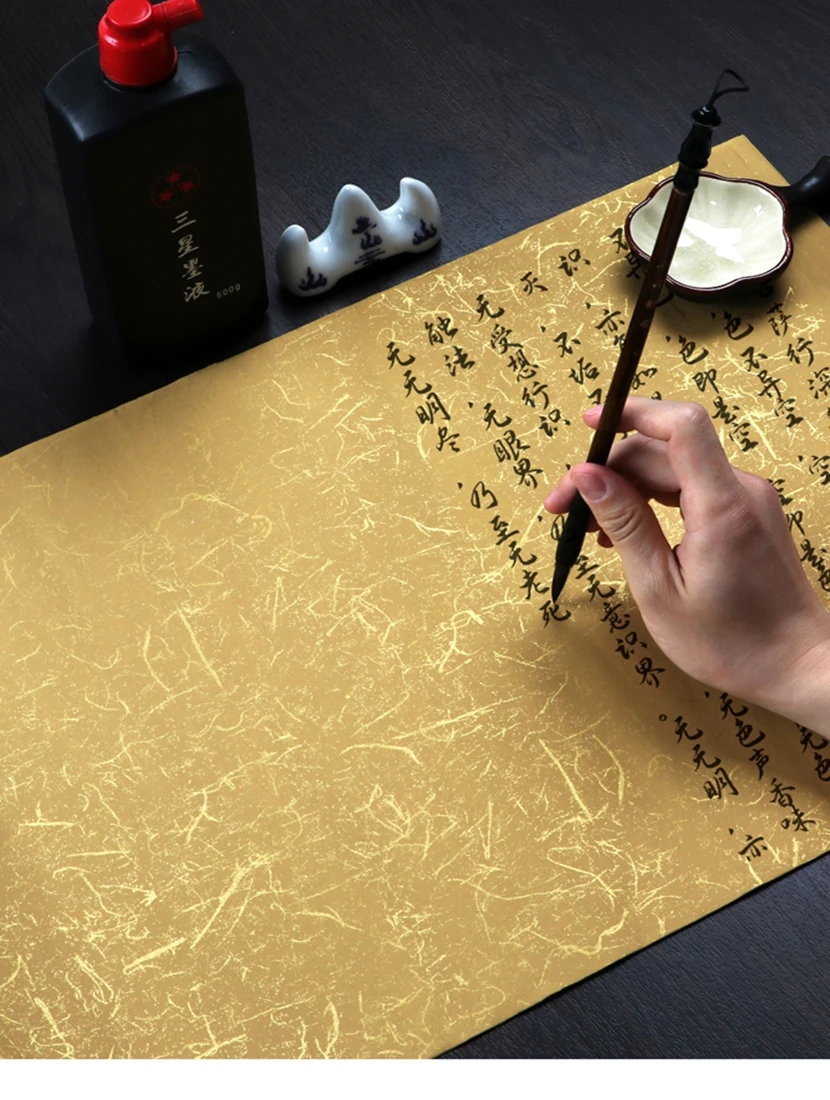 三星墨液 500g
萨行深
色不异空，空
色即是空 空即是色
识，亦
灭，不垢 无色
无受想行识，无色声香味
触法，无眼界，乃至无意识界。无无明，亦
无无明尽，乃至无老死